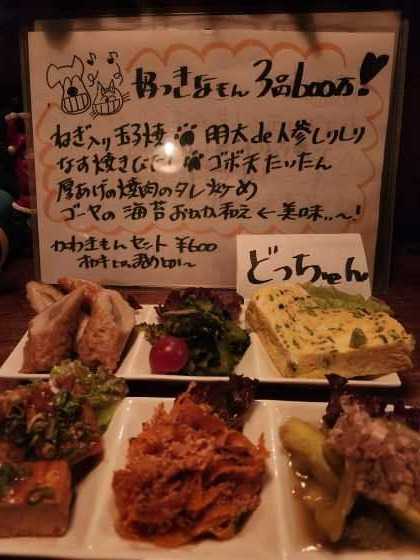 好っきなもん 3品600万!
ねぎ入り玉子焼 明太de人参しりしり
なす焼きびたし ゴボ天たいたん
厚あげの焼肉のタレ炒め
ゴーヤの海苔おかか和え ← 美味..~!
かわきもんセット ¥600
どっちゃん